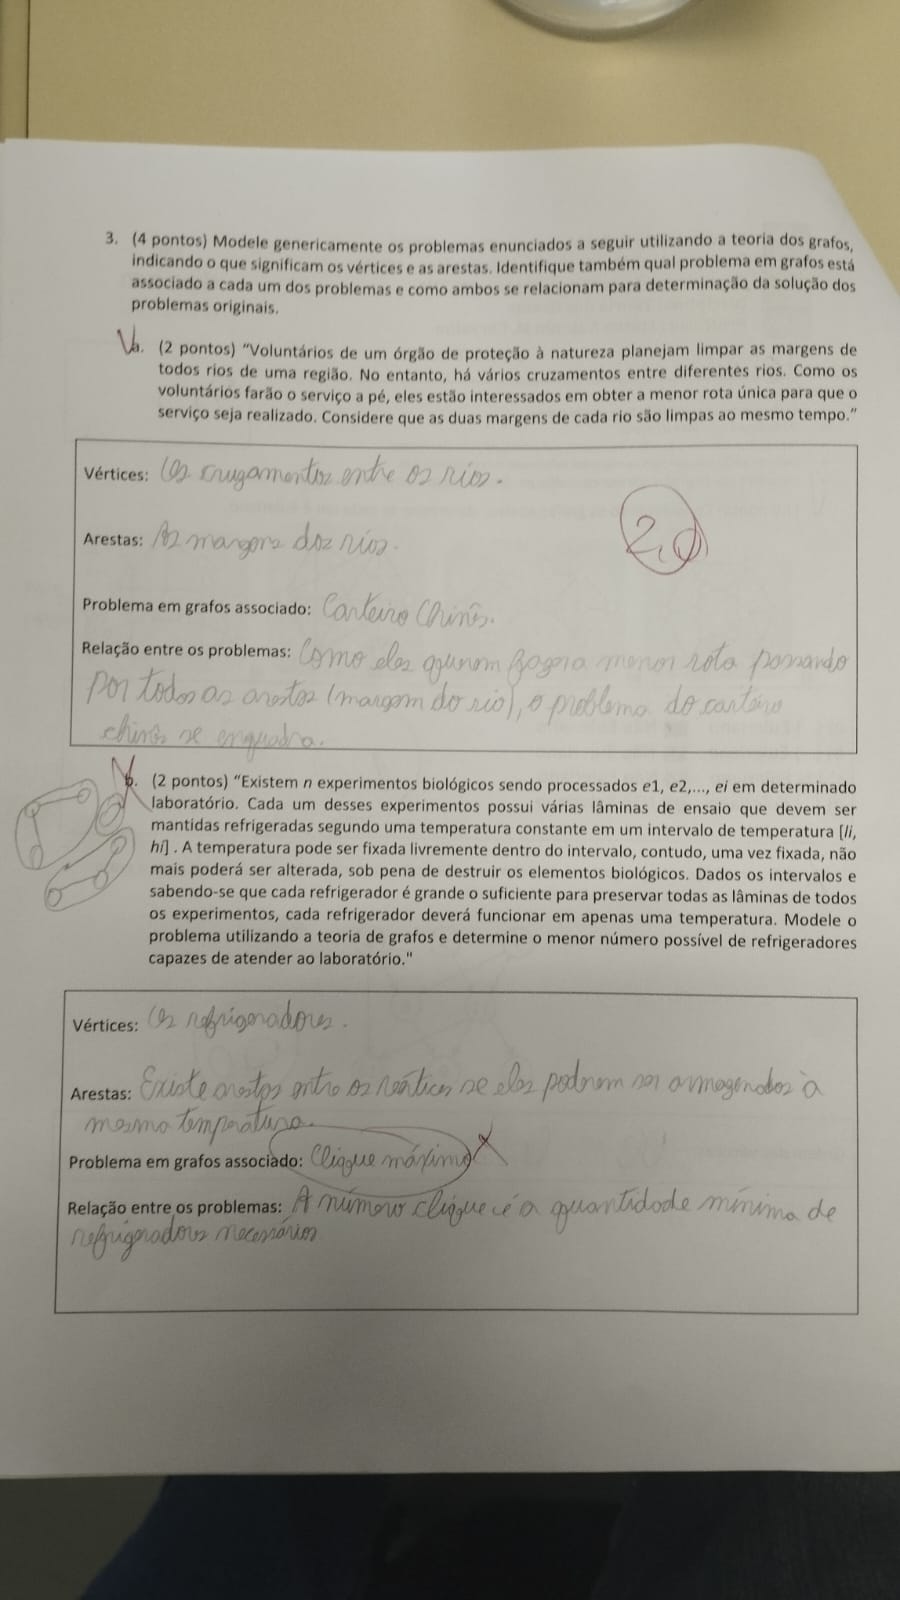 3. (4 pontos) Modele genericamente os problemas enunciados a seguir utilizando a teoria dos grafos,
indicando o que significam os vértices e as arestas. Identifique também qual problema em grafos está
associado a cada um dos problemas e como ambos se relacionam para determinação da solução dos
problemas originais.
a. (2 pontos) “Voluntários de um órgão de proteção à natureza planejam limpar as margens de
todos rios de uma região. No entanto, há vários cruzamentos entre diferentes rios. Como os
voluntários farão o serviço a pé, eles estão interessados em obter a menor rota única para que o
serviço seja realizado. Considere que as duas margens de cada rio são limpas ao mesmo tempo.”
Vértices: Os cruzamentos entre os rios.
Arestas: As margens dos rios.
2,0
Problema em grafos associado: Carteiro Chinês.
Relação entre os problemas: Como eles querem fazer a menor rota passando
por todos as arestas (margem do rio), o problema do carteiro
chinês se enquadra.
b. (2 pontos) “Existem n experimentos biológicos sendo processados e1, e2,..., ei em determinado
laboratório. Cada um desses experimentos possui várias lâminas de ensaio que devem ser
mantidas refrigeradas segundo uma temperatura constante em um intervalo de temperatura [li,
hi] . A temperatura pode ser fixada livremente dentro do intervalo, contudo, uma vez fixada, não
mais poderá ser alterada, sob pena de destruir os elementos biológicos. Dados os intervalos e
sabendo-se que cada refrigerador é grande o suficiente para preservar todas as lâminas de todos
os experimentos, cada refrigerador deverá funcionar em apenas uma temperatura. Modele o
problema utilizando a teoria de grafos e determine o menor número possível de refrigeradores
capazes de atender ao laboratório."
Vértices: Os refrigeradores.
Arestas: Existe arestas entre os vértices se eles podem ser armazenados à
mesma temperatura.
Problema em grafos associado: Clique máximo
Relação entre os problemas: A número clique é a quantidade mínima de
refrigeradores necessários